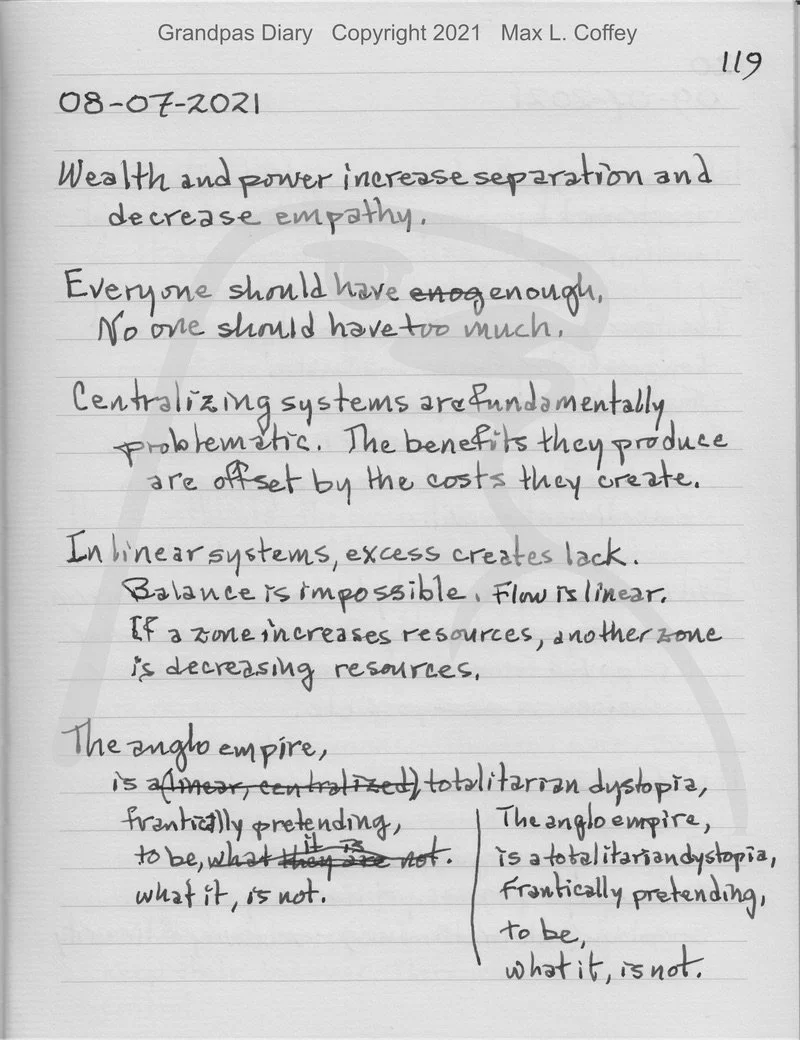 Grandpas Diary Copyright 2021 Max L. Coffey
119
08-07-2021
Wealth and power increase separation and
decrease empathy.
Everyone should have enog enough,
No one should have too much.
Centralizing systems are fundamentally
problematic. The benefits they produce
are offset by the costs they create.
In linear systems, excess creates lack.
Balance is impossible. Flow is linear.
If a zone increases resources, another zone
is decreasing resources.
The anglo empire,
is a (linear, centralized), totalitarian dystopia,
frantically pretending,
it is
to be, what they are not.
what it, is not.
The anglo empire,
is a totalitarian dystopia,
Frantically pretending,
to be,
what it, is not.